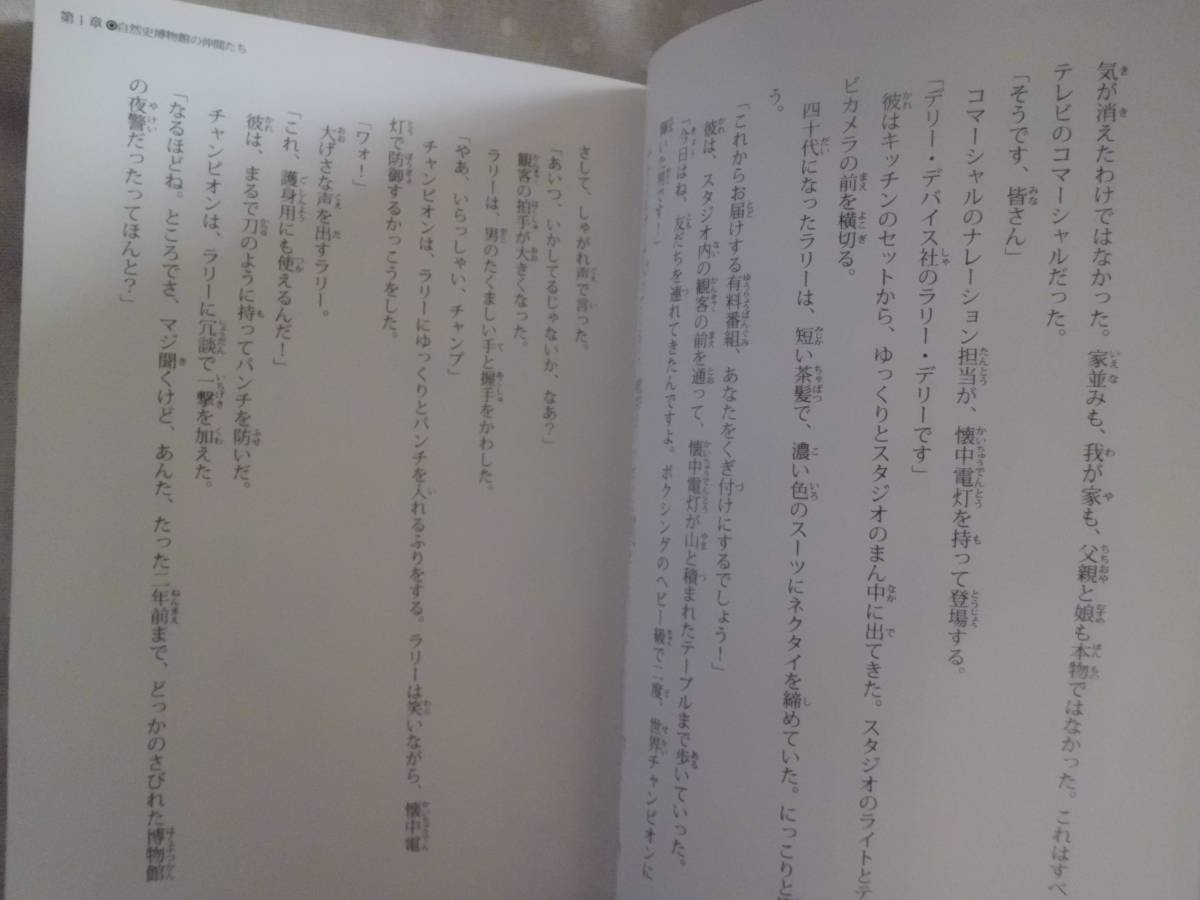 気が消えたわけではなかった。家並みも、我が家も、父親と娘も本物ではなかった。これはすべ
テレビのコマーシャルだった。
「そうです、皆さん」
コマーシャルのナレーション担当が、懐中電灯を持って登場する。
「デリー・デバイス社のラリー・デリーです」
彼はキッチンのセットから、ゆっくりとスタジオのまん中に出てきた。スタジオのライトとテ
ビカメラの前を横切る。
四十代になったラリーは、短い茶髪で、濃い色のスーツにネクタイを締めていた。にっこりと
う。
「これからお届けする有料番組、あなたをくぎ付けにするでしょう!」
彼は、スタジオ内の観客の前を通って、懐中電灯が山と積まれたテーブルまで歩いていった。
「今日はね、友だちを連れてきたんですよ。ボクシングのヘビー級で二度、世界チャンピオンに
第1章◉自然史博物館の仲間たち
さして、しゃがれ声で言った。
「あいつ、いかしてるじゃないか、なあ?」
観客の拍手が大きくなった。
ラリーは、男のたくましい手と握手をかわした。
「やあ、いらっしゃい、チャンプ」
チャンピオンは、ラリーにゆっくりとパンチを入れるふりをする。ラリーは笑いながら、懐中電
灯で防御するかっこうをした。
「ワォ!」
大げさな声を出すラリー。
「これ、護身用にも使えるんだ!」
彼は、まるで刀のように持ってパンチを防いだ。
チャンピオンは、ラリーに冗談で一撃を加えた。
「なるほどね。ところでさ、マジ聞くけど、あんた、たった二年前まで、どっかのさびれた博物館
の夜警だったってほんと?」